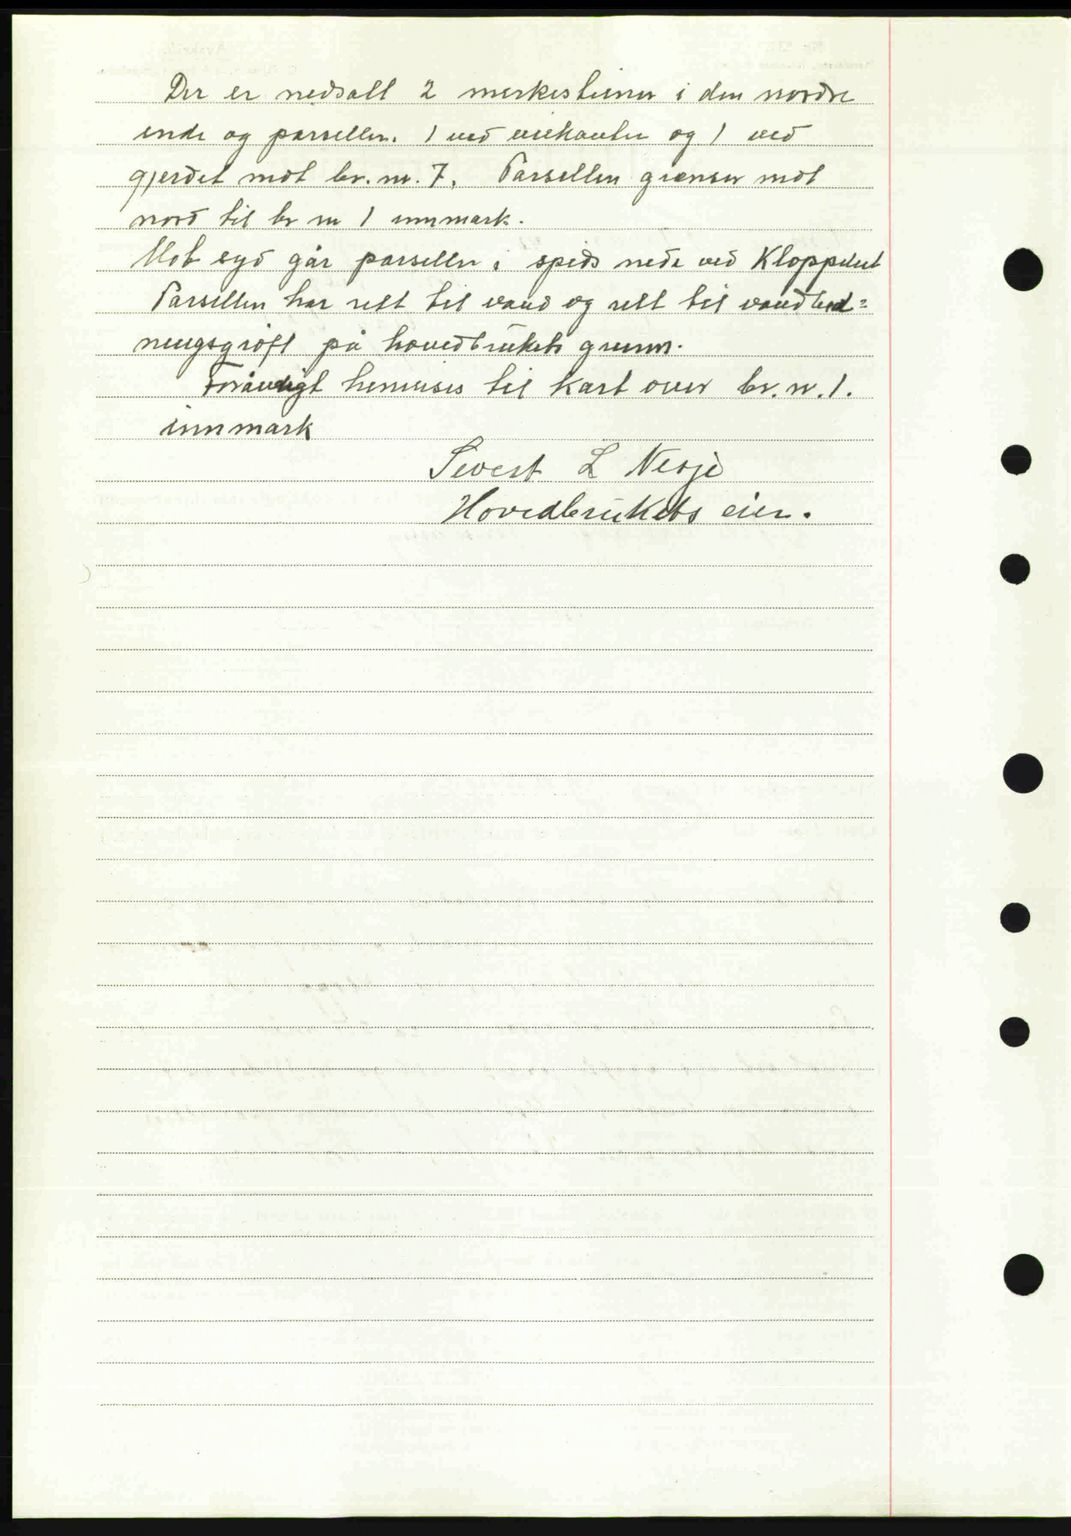 Der er nedsatt 2 merkesteiner i den nordre
ende og parsellen. 1 ved veikanten og 1 ved
gjerdet mot br. nr. 7. Parsellen grenser mot
nord til br nr 1 innmark.
Mot syd går parsellen i spids nede ved Kloppelut
Parsellen har rett til vand og rett til vandled=
ningsgrøft på hovedbrukets grunn.
Forøvrigt henvises til kart over br. nr. 1.
innmark
Sivert L Nesje
Hovedbrukets eier.